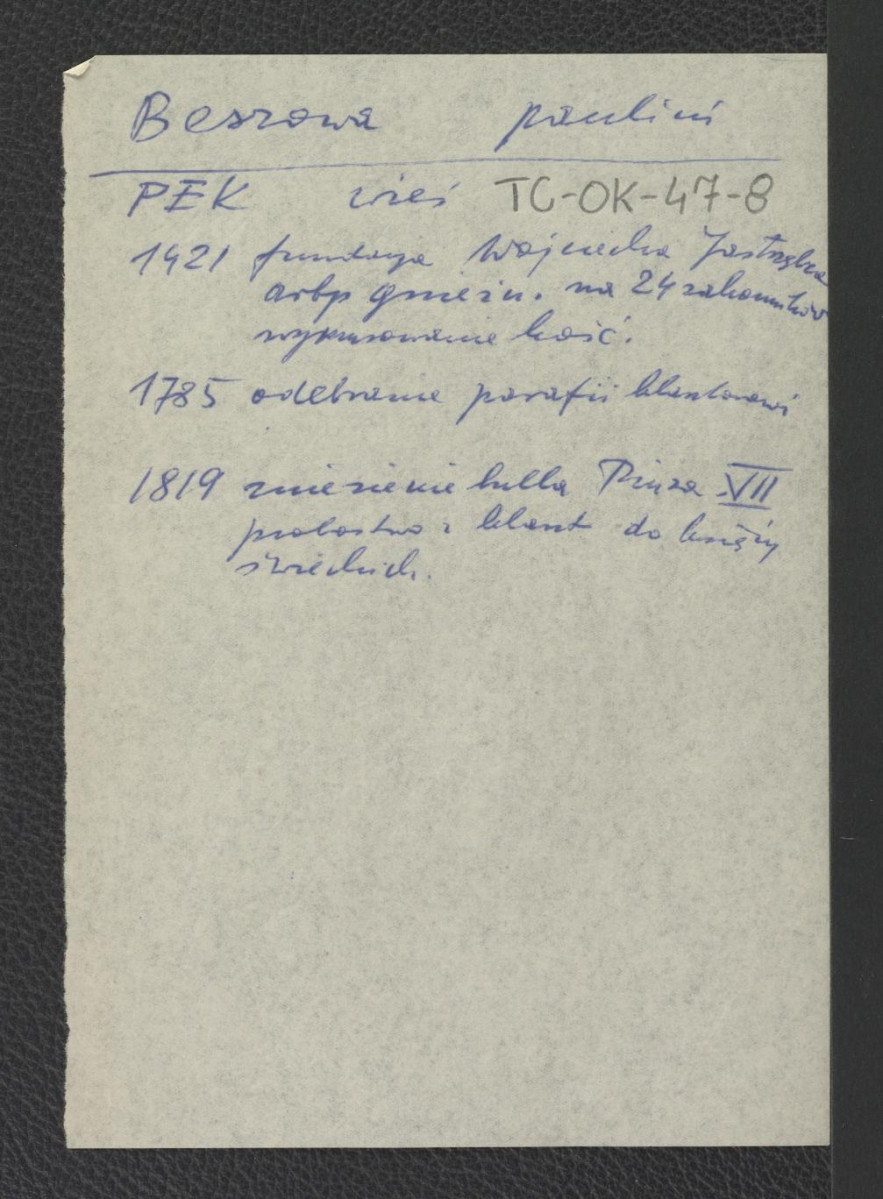 Beszowa paulini
PEK wieś TC-OK-47-8
1421 fundacja Wojciecha Jastrzębca
arbp gnieźn. na 24 zakonników
wymurowanie kość.
1785 odebranie parafii klasztorowi
1819 zniesienie bulla Piusa VII
probostwo i klaszt do księży
świeckich.